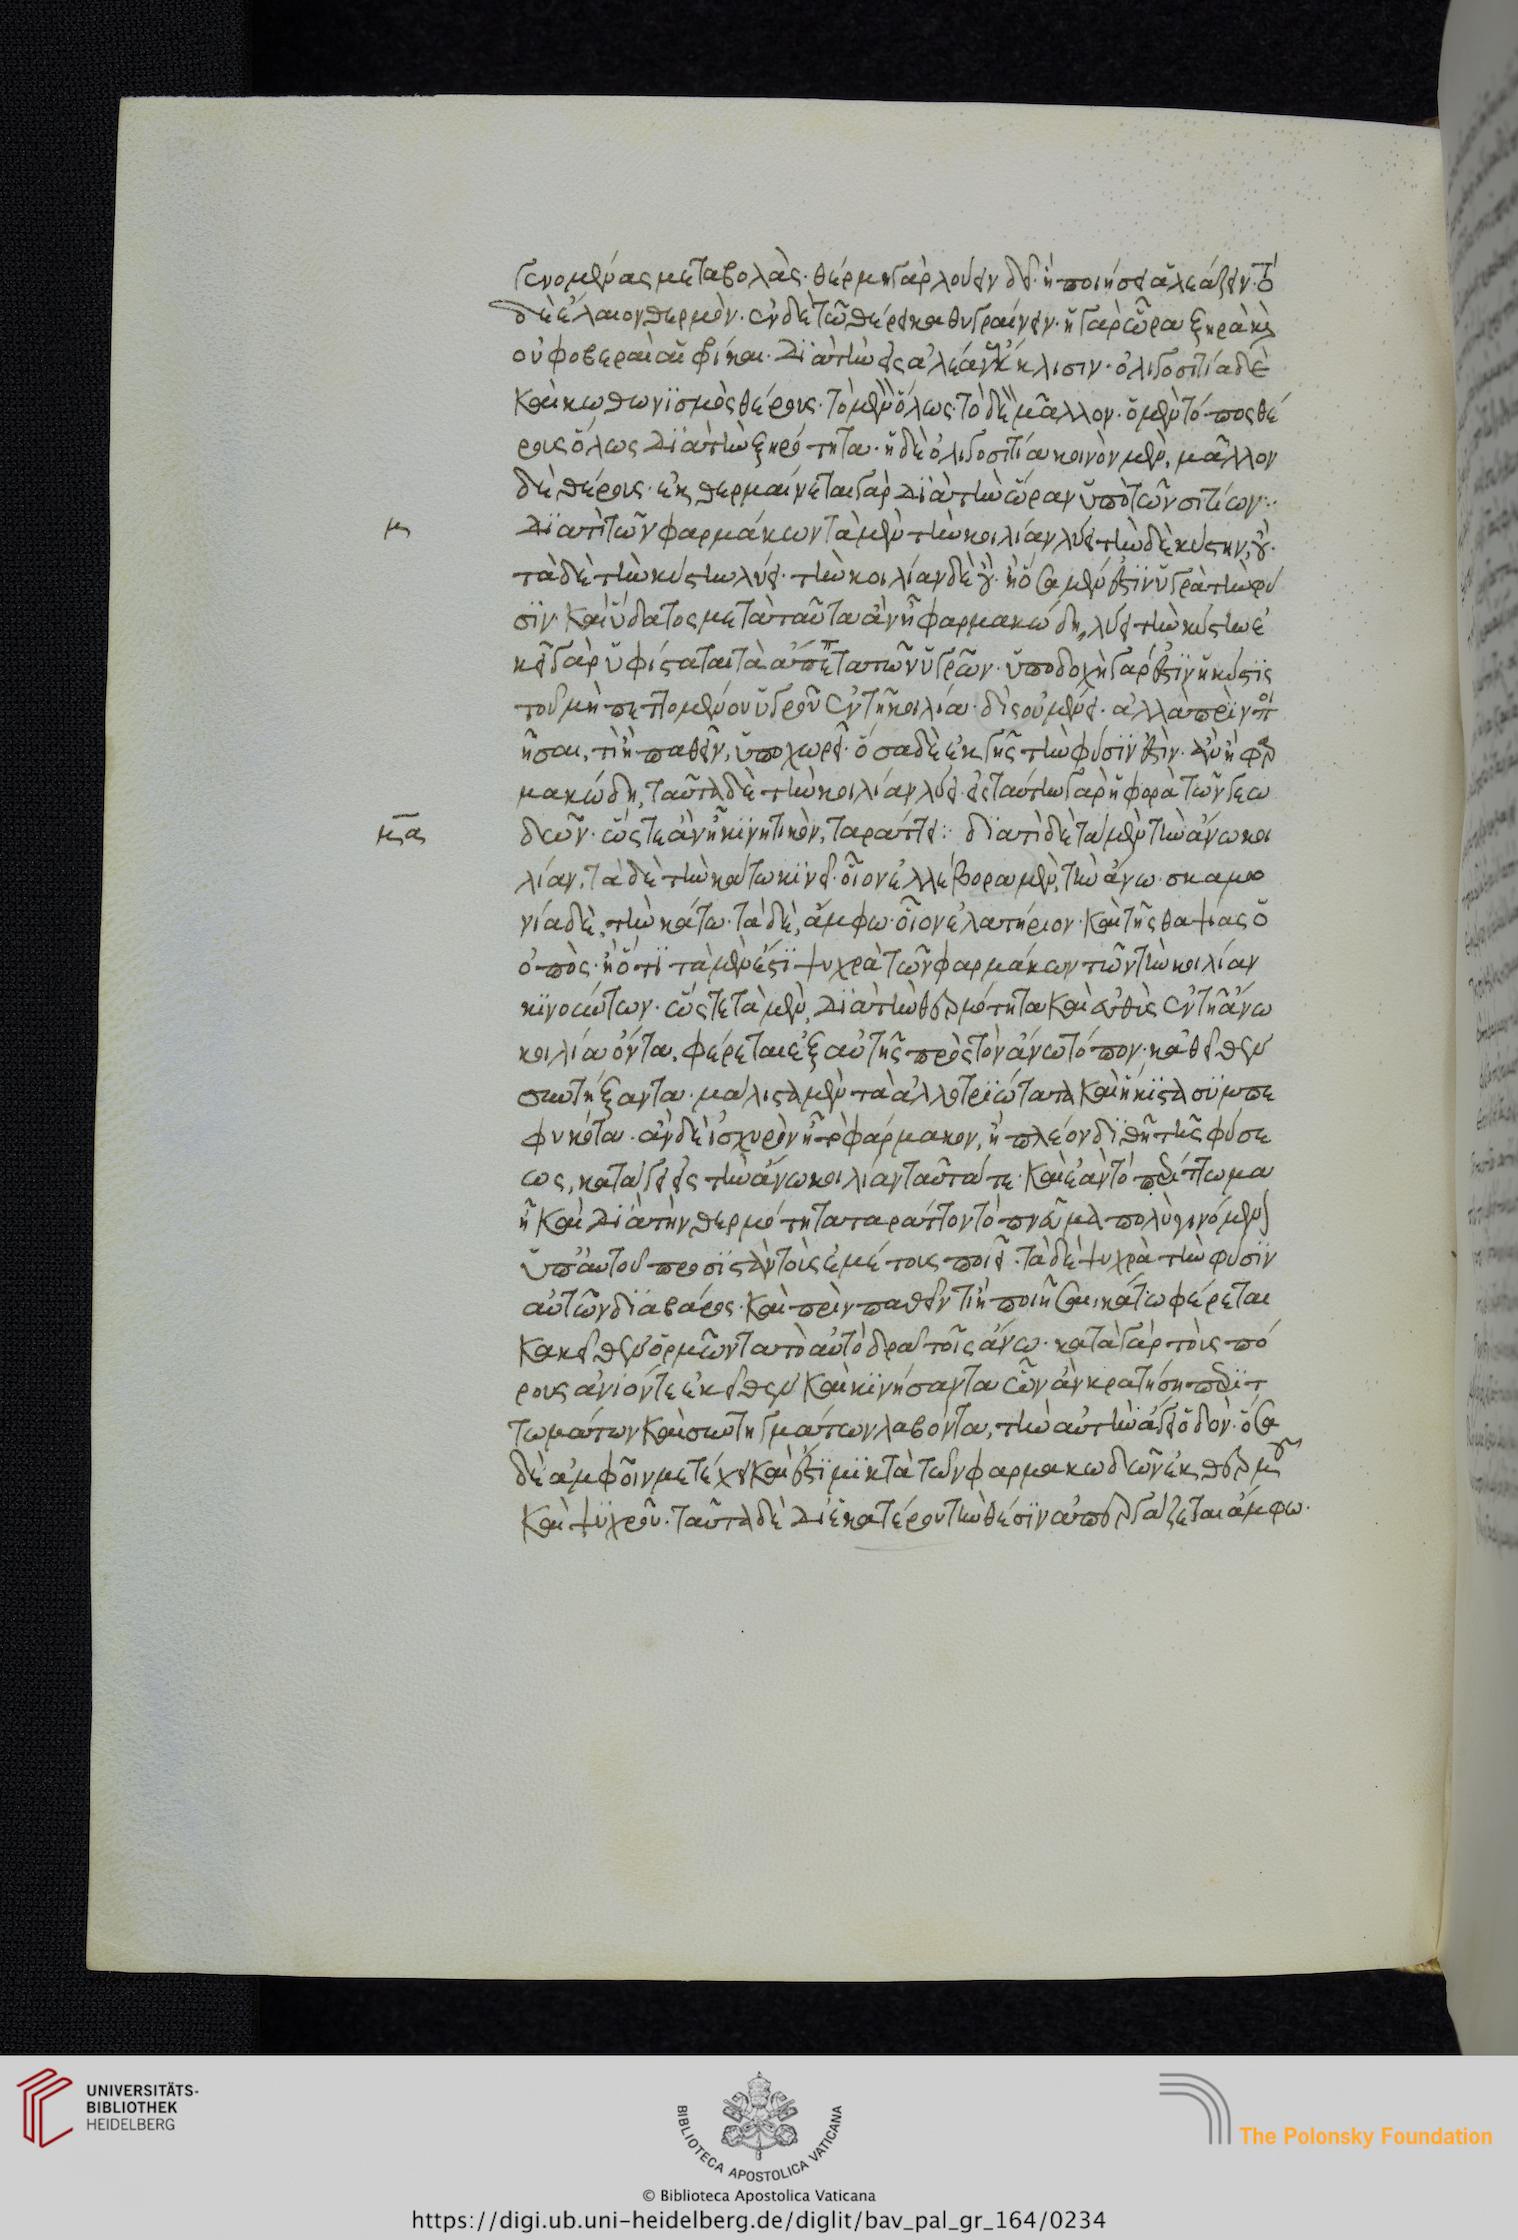 γενομένας μεταβολάς· θέρμη γὰρ λούειν δεῖ· ἢ ποιήσει ἀλεάζειν· τὸ
δὲ ἔλαιον θερμὸν· ἐν δὲ τῶ θέρει καθυγραίνειν· ἡ γὰρ ὥρα ξηρὰ καὶ
οὐ φοβεραὶ αἱ φρίκαι· διὰ τὴν εἰς ἀλέαν ἔκκλισιν· ὀλιγοσιτία δὲ
καὶ κωθωνϊσμὸς θέρους· τὸ μὲν ὅλως· τὸ δὲ μᾶλλον· ὁ μὲν πότος θέ
ρους ὅλως διὰ τὴν ξηρότητα· ἡ δὲ ὀλιγοσιτία κοινὸν μὲν, μᾶλλον
δὲ θέρους· ἐκθερμαίνεται γὰρ διὰ τὴν ὥραν ὑπὸ τῶν σιτίων:·
μ διατί τῶν φαρμάκων τὰ μὲν τὴν κοιλίαν λύει τὴν δὲ κύστιν, οὔ·
τὰ δὲ τὴν κύστιν λύει· τὴν κοιλίαν δὲ οὔ· ἢ ὅσα μέν ἐστϊν ὑγρὰ τὴν φύ
σϊν· καὶ ὕδατος μεστὰ ταῦτα ἂν ἦ φαρμακώδη, λύει τὴν κύστιν ἐ
κεῖ γὰρ ὑφίσταται τὰ ἄπεπτα τῶν ὑγρῶν· ὑποδοχὴ γάρ ἐστϊν ἡ κύστϊς
τοῦ μὴ πεττομένου ὑγροῦ ἐν τῆ κοιλία· ὃ οὐ μένει· ἀλλὰ πρὶν ποι
ῆσαι, τὶ ἢ παθεῖν, ὑποχωρεῖ· ὅσα δὲ ἐκ γῆς τὴν φύσϊν ἐστὶν· ἂν ἦ φαρ
μακώδη, ταῦτα δὲ τὴν κοιλίαν λύει· εἰς ταύτην γὰρ ἡ φορὰ τῶν γεω
κ̅α̅ δῶν· ὥστε ἂν ἦ κϊνητικὸν, ταράττει:· διατὶ δὲ τὰ μὲν τὴν ἄνω κοι
λίαν, τὰ δὲ τὴν κάτω κϊνεῖ· οἷον ἐλλέβορα μὲν, τὴν ἄνω· σκαμω
νία δὲ, τὴν κάτω· τὰ δὲ, ἄμφω· οἷον ἐλατήριον· καὶ τῆς θαψίας ὁ
ὀπὸς· ἢ ὅτϊ τὰ μὲν ἐστϊ ψυχρὰ τῶν φαρμάκων τῶν τὴν κοιλίαν
κϊνούντων· ὥστε τὰ μὲν, διὰ τὴν θερμότητα καὶ εὐθὺς ἐν τῆ ἄνω
κοιλία ὄντα, φέρεται ἐξ αὐτῆς πρὸς τὸν ἄνω τόπον· κἀκεῖθεν
συντήξαντα· μάλιστα μὲν τὰ ἀλλοτρϊώτατα καὶ ἥκϊστα συμπε
φυκότα· ἂν δὲ ἰσχυρὸν ἦ τὸ φάρμακον, ἢ πλέον δοθῆ τῆς φύσε
ως, κατάγει εἰς τὴν ἄνω κοιλίαν ταῦτά τε· καὶ ἐάν τὸ περίττωμα
ἦ καὶ διὰ τὴν θερμότητα ταράττον τὸ πνεῦμα πολὺ γινόμενον
ὑπ' αὐτοῦ προσϊστὰν τοὺς ἐμέτους ποιεῖ· τὰ δὲ ψυχρὰ τὴν φύσϊν
αὐτῶν διὰ βάρος· καὶ πρὶν παθεῖν τὶ ἢ ποιῆσαι, κάτω φέρεται
κἀκεῖθεν ὁρμῶντα τὸ αὐτὸ δρᾶ τοῖς ἄνω· κατὰ γὰρ τοὺς πό
ρους ἀνϊόντε ἐκεῖθεν καὶ κϊνήσαντα ὧν ἂν κρατήση περϊτ
τωμάτων καὶ συντηγμάτων λαβόντα, τὴν αὐτὴν ἄγει ὁδὸν· ὅσα
δὲ ἀμφοῖν μετέχει καὶ ἐστϊ μϊκτὰ τῶν φαρμακωδῶν ἐκ θερμοῦ
καὶ ψϋχροῦ· ταῦτα δὲ δι' ἑκατέρου τὴν θέσϊν ἀπεργάζεται ἄμφω·
UNIVERSITÄTS-
BIBLIOTHEK
HEIDELBERG
BIBLIOTECA APOSTOLICA VATICANA
The Polonsky Foundation
© Biblioteca Apostolica Vaticana
https://digi.ub.uni-heidelberg.de/diglit/bav_pal_gr_164/0234